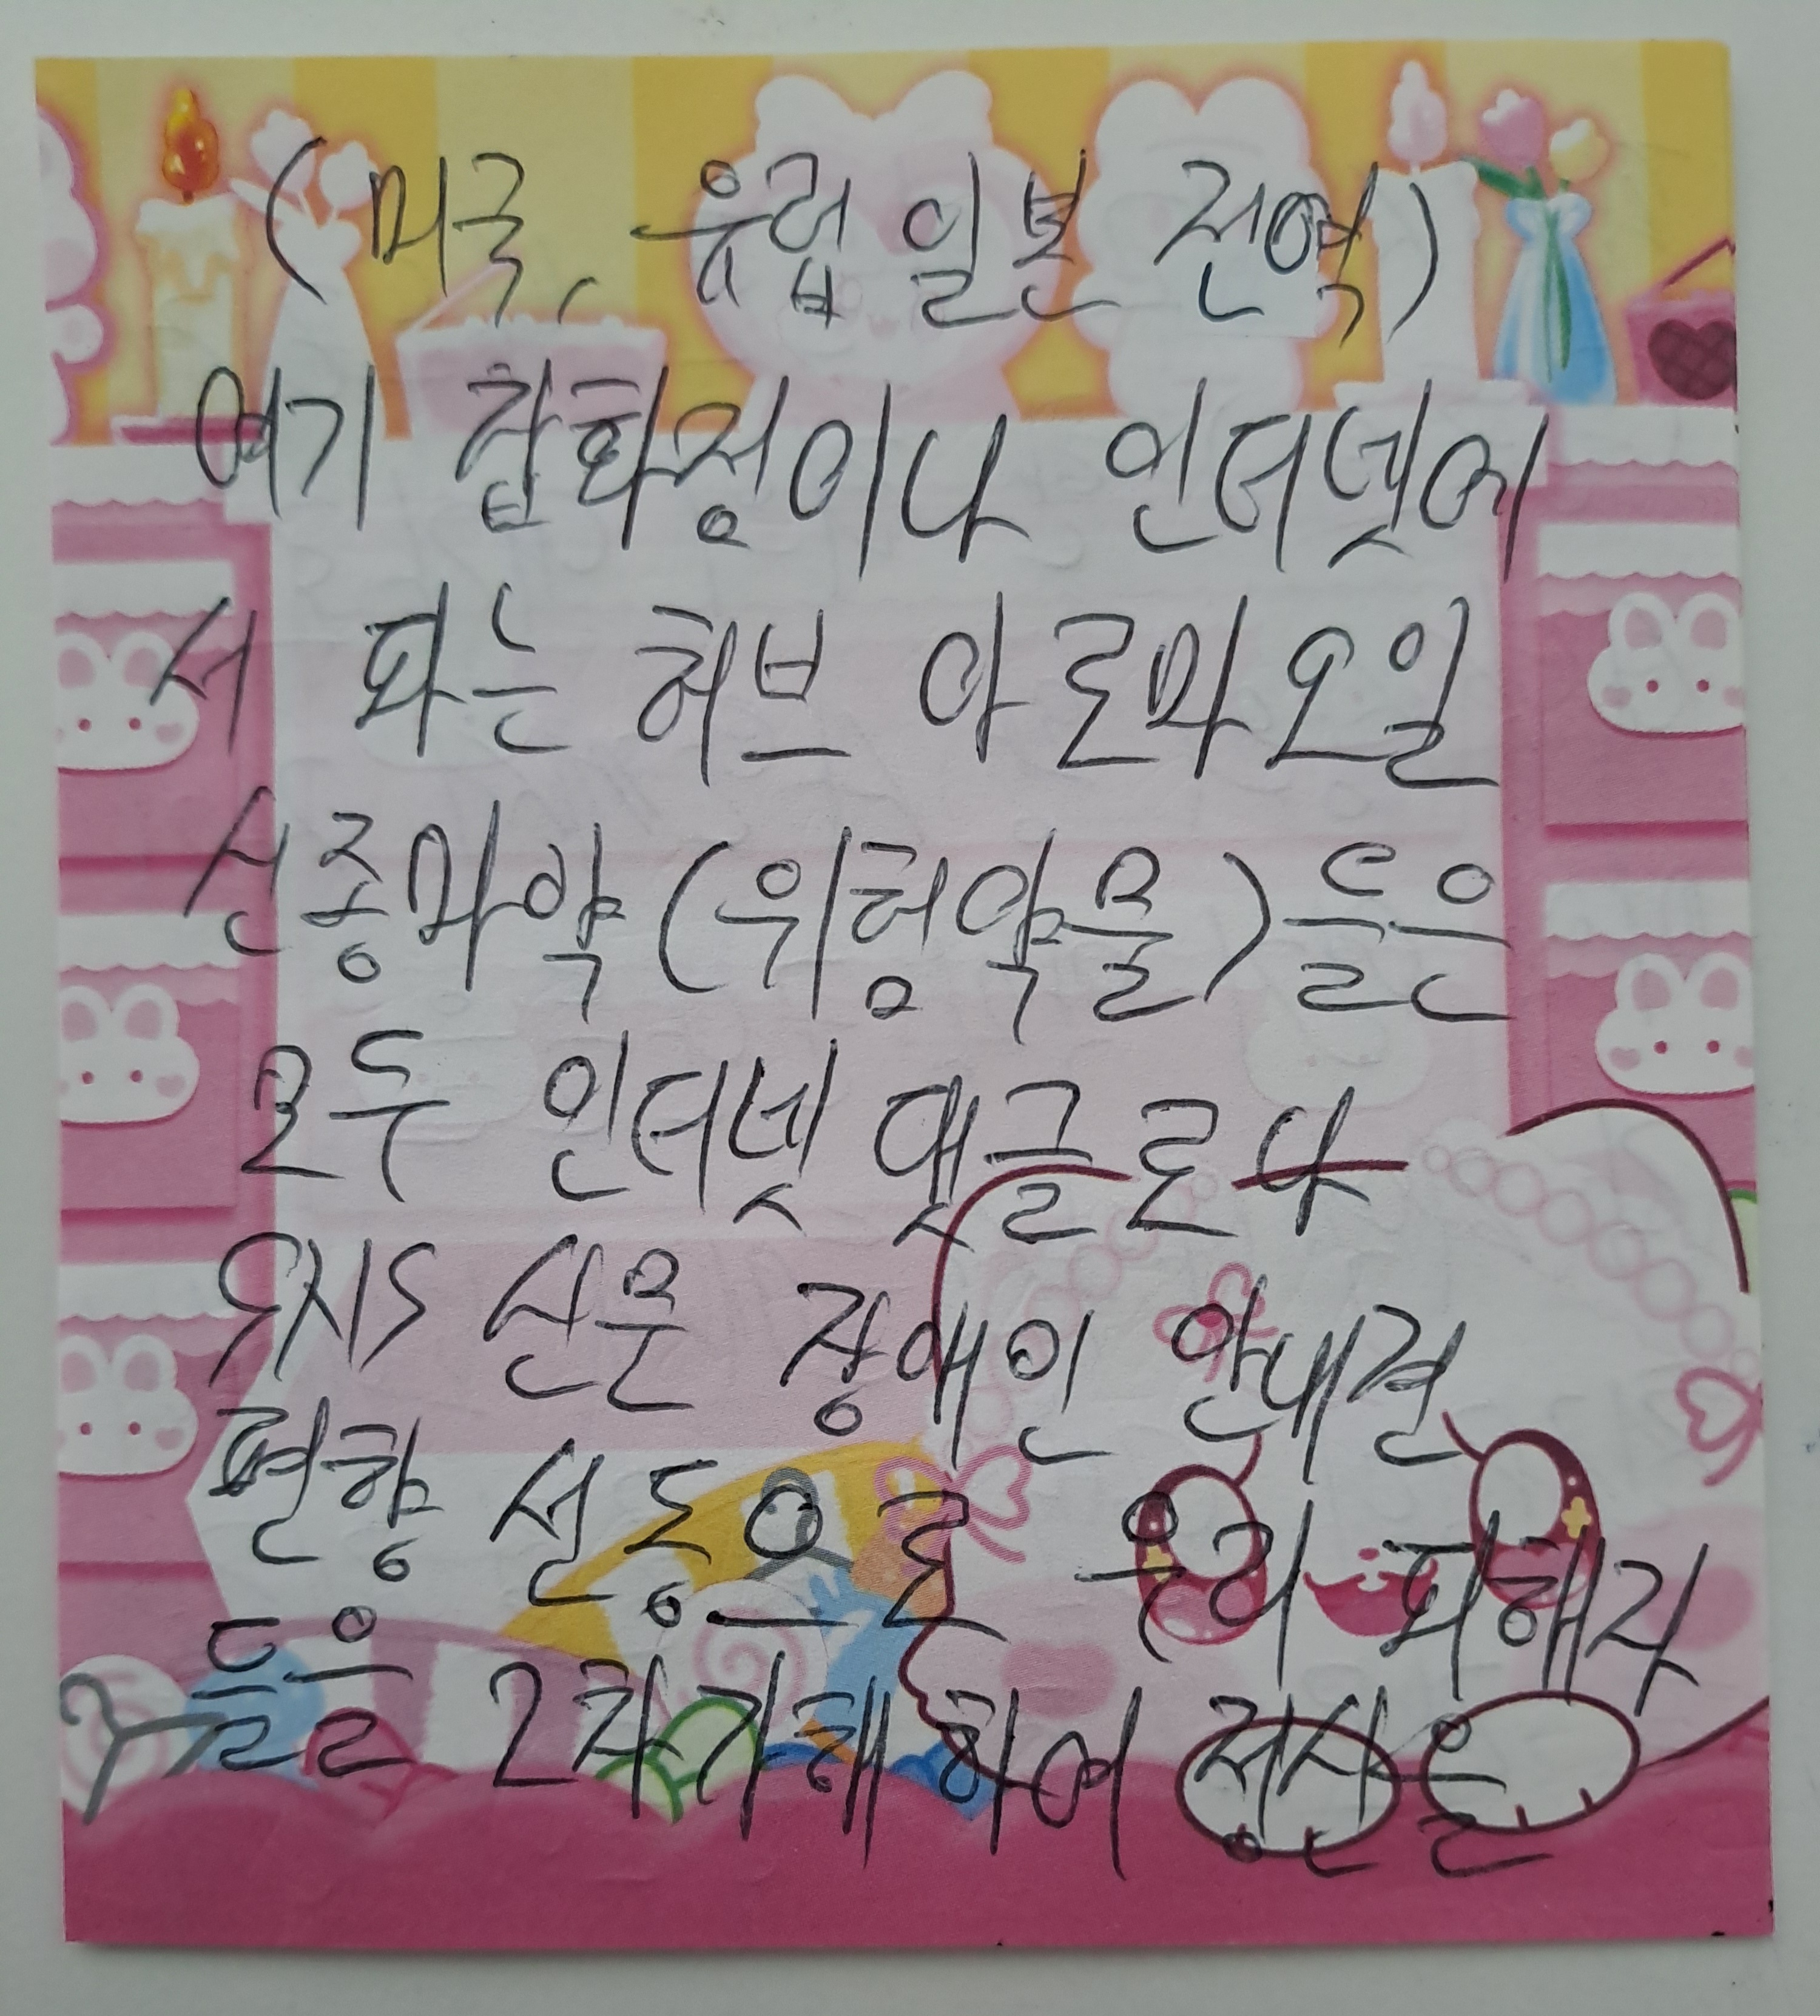 (미국, 유럽 일본 전역)
여기 잡화점이나 인터넷에
서 파는 허브 아로마 오일
신종마약(위험약물)들은
모두 인터넷 댓글로나
SNS 신문 장애인 안내견
편향 선동으로 우리 피해자
들을 2차가해 하여 정신을